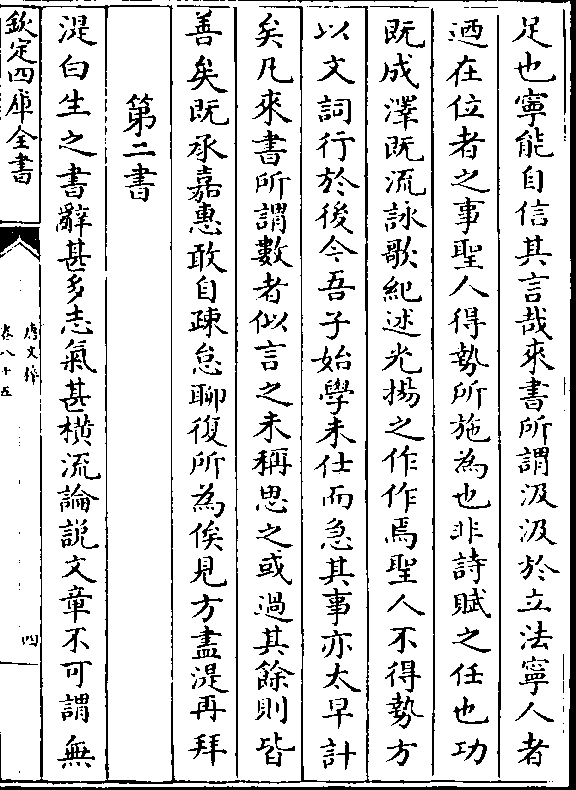 足也寧能自信其言哉來書所謂汲汲於立法寧人者
廼在位者之事聖人得勢所施為也非詩賦之任也功
既成澤既流詠歌紀述光揚之作作焉聖人不得勢方
以文詞行於後今吾子始學未仕而急其事亦太早計
矣凡來書所謂數者似言之未稱思之或過其餘則皆
善矣既承嘉惠敢自疎怠聊復所為俟見方盡湜再拜
第二書
湜白生之書辭甚多志氣甚橫流論說文章不可謂無
欽定四庫全書
唐文粹
卷八十五
四